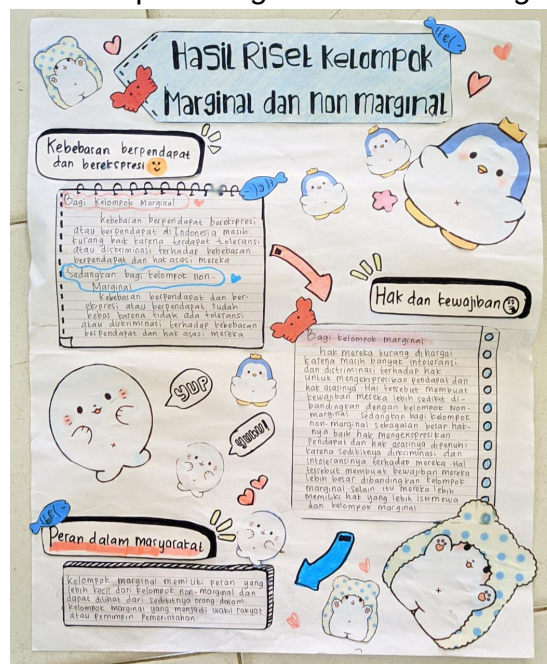 Hasil Riset Kelompok
Marginal dan non marginal
Kebebasan berpendapat
dan berekspresi
Bagi Kelompok Marginal
Kebebasan berpendapat berekspresi
atau berpendapat di Indonesia masih
kurang baik karena terdapat toleransi
atau diskriminasi terhadap kebebasan
berpendapat dan hak asasi mereka
Sedangkan bagi kelompok non-
Marginal
Kebebasan berpendapat dan ber-
ekspresi atau berpendapat sudah
bebas karena tidak ada toleransi
atau diskriminasi terhadap kebebasan
berpendapat dan hak asasi mereka
Hak dan kewajiban
Bagi kelompok marginal
hak mereka kurang dihargai
karena masih banyak intoleransi
dan distiminasi terhadap hak
untuk mengekspresikan pendapat dan
hak asasinya. Hal tersebut membuat
kewajiban mereka lebih sedikit di-
bandingkan dengan kelompok non-
marginal. Sedangkan bagi kelompok
non-marginal sebagaian besar hak-
nya baik hak mengekspresikan
pendapat dan hak asasinya dipenuhi
karena sedikitnya diskriminasi dan
intoleransinya terhadap mereka. Hal
tersebut membuat kewajiban mereka
lebih besar dibandingkan kelompok
marginal. Selain itu mereka lebih
memiliki hak yang lebih istimewa
dan kelompok marginal
YUP
Yuhu!
Peran dalam masyarakat
Kelompok marginal memiliki peran yang
lebih kecil dan kelompok non-marginal dan
dapat dilihat dari sedikitnya orang dalam
kelompok marginal yang menjadi wakil rakyat
atau Pemimpin Pemerintahan